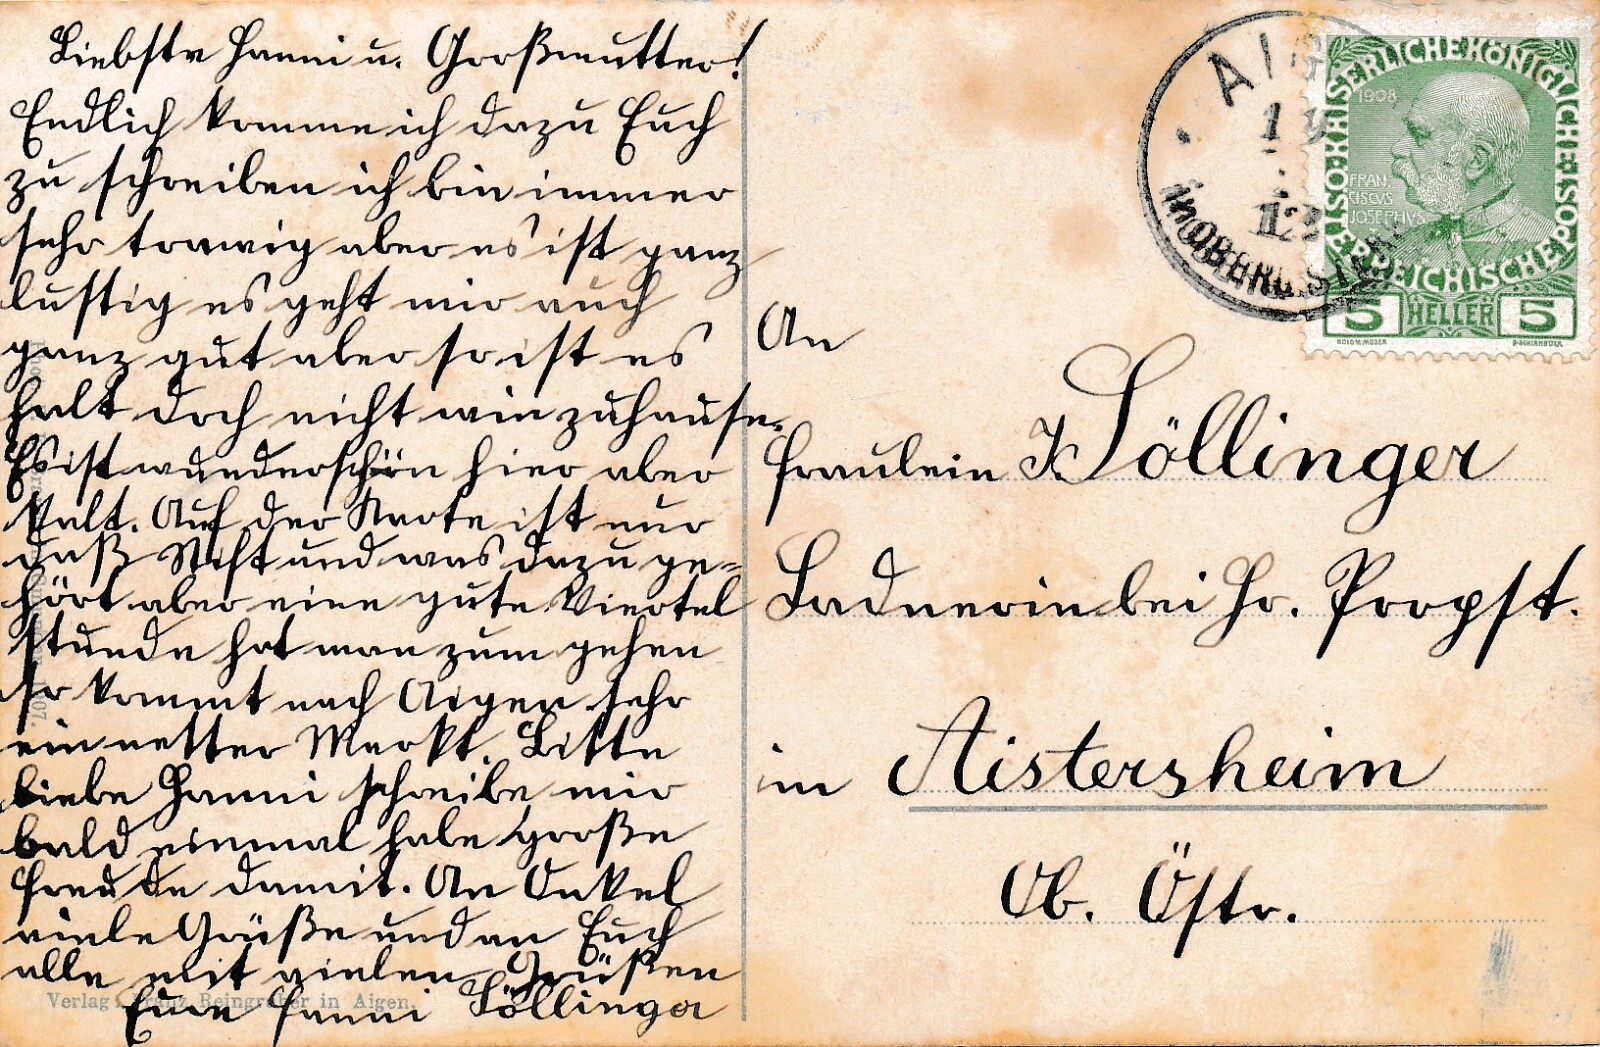 Liebste Hanni u. Großmutter!
Endlich komme ich dazu Euch
zu schreiben ich bin immer
sehr traurig aber es ist ganz
lustig es geht mir auch
ganz gut aber so ist es
halt doch nicht wie zuhause.
Es ist wunderschön hier aber
kalt. Auf der Karte ist nur
daß Stift und was dazu ge=
hört aber eine gute Viertel
stunde hat man zum gehen
so kommt nach Aigen sehr
ein netter Markt. Bitte
liebe Hanni schreibe mir
bald einmal habe große
Freude damit. An Onkel
viele Grüße und an Euch
alle mit vielen Grüßen
Eure Fanni Söllinger
Verlag Franz Reingruber in Aigen.
1907.
An
Fräulein J. Söllinger
Ladnerin bei Hr. Propst.
in Aistersheim
Ob. Östr.
KAISERLICHEKÖNIGLICHE
ÖSTERREICHISCHE POST
1908
FRAN
CISCVS
JOSEPHVS
5 HELLER 5
AIG
12
in OBERÖST